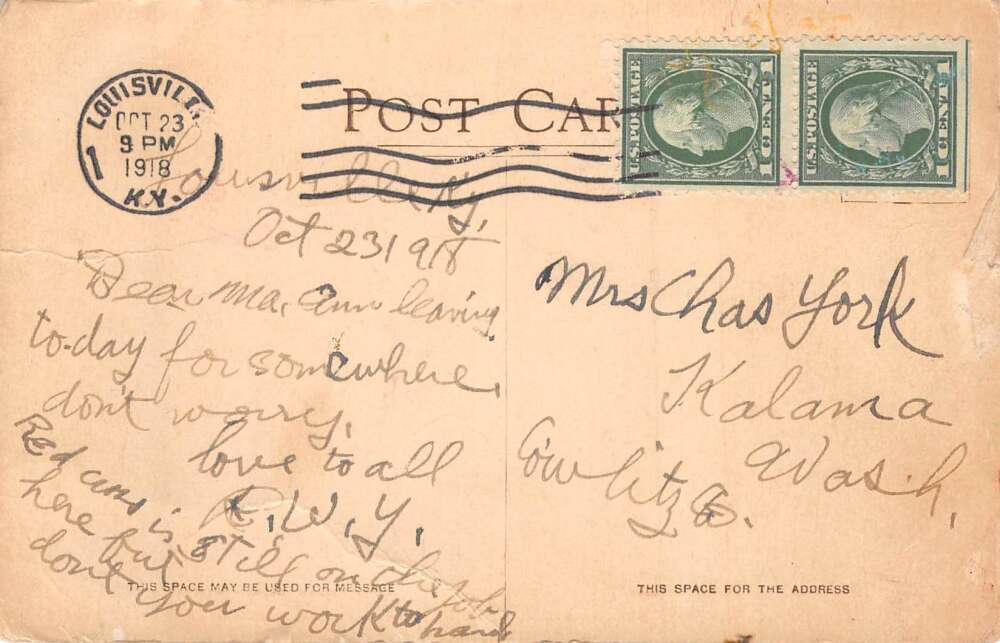 LOUISVILLE
OCT 23
9 PM
1918
KY.
1
POST CAR
U.S. POSTAGE
1 CENT 1
U.S. POSTAGE
1 CENT 1
Louisville Ky,
Oct 23 1918
Dear Ma, am leaving
to-day for somewhere.
don't worry.
love to all
R. W. Y.
Red is
here but still on the job
don't you work to hard
THIS SPACE MAY BE USED FOR MESSAGE
Mrs Chas York
Kalama
Wash,
Cowlitz Co.
THIS SPACE FOR THE ADDRESS